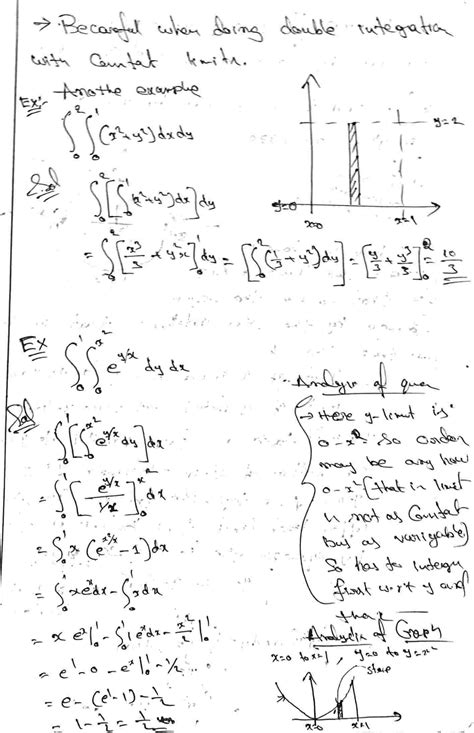 → Be careful when doing double integration
with Constat limits.
Ex:- Anothe example
∫₀² ∫₀¹ (x²+y²) dx dy
y=2
y=0
x=0
x=1
Sol
∫₀² [∫₀¹ (x²+y²) dx] dy
= ∫₀² [x³/3 + y²x]₀¹ dy = [∫₀² (1/3 + y²) dy] = [y/3 + y³/3]₀² = 10/3
Ex
∫₀¹ ∫₀^{x²} e^{y/x} dy dx
Sol
∫₀¹ [∫₀^{x²} e^{y/x} dy] dx
= ∫₀¹ [e^{y/x} / 1/x]₀^{x²} dx
= ∫₀¹ x (e^{x²/x} - 1) dx
= ∫₀¹ x eˣ dx - ∫₀¹ x dx
= x eˣ|₀¹ - ∫₀¹ 1 eˣ dx - x²/2|₀¹
= e¹ - 0 - eˣ|₀¹ - 1/2
= e - (e¹ - 1) - 1/2
= 1 - 1/2 = 1/2
Analysis of ques
→ Here y-limit is
0-x² so order
may be any how
0-x² (that in limit
is not as Constat
but as variable)
So has to integra
first w.r.t y and
than
Analysis of Graph
x=0 to x=1, y=0 to y=x²
strip
x=0
x=1